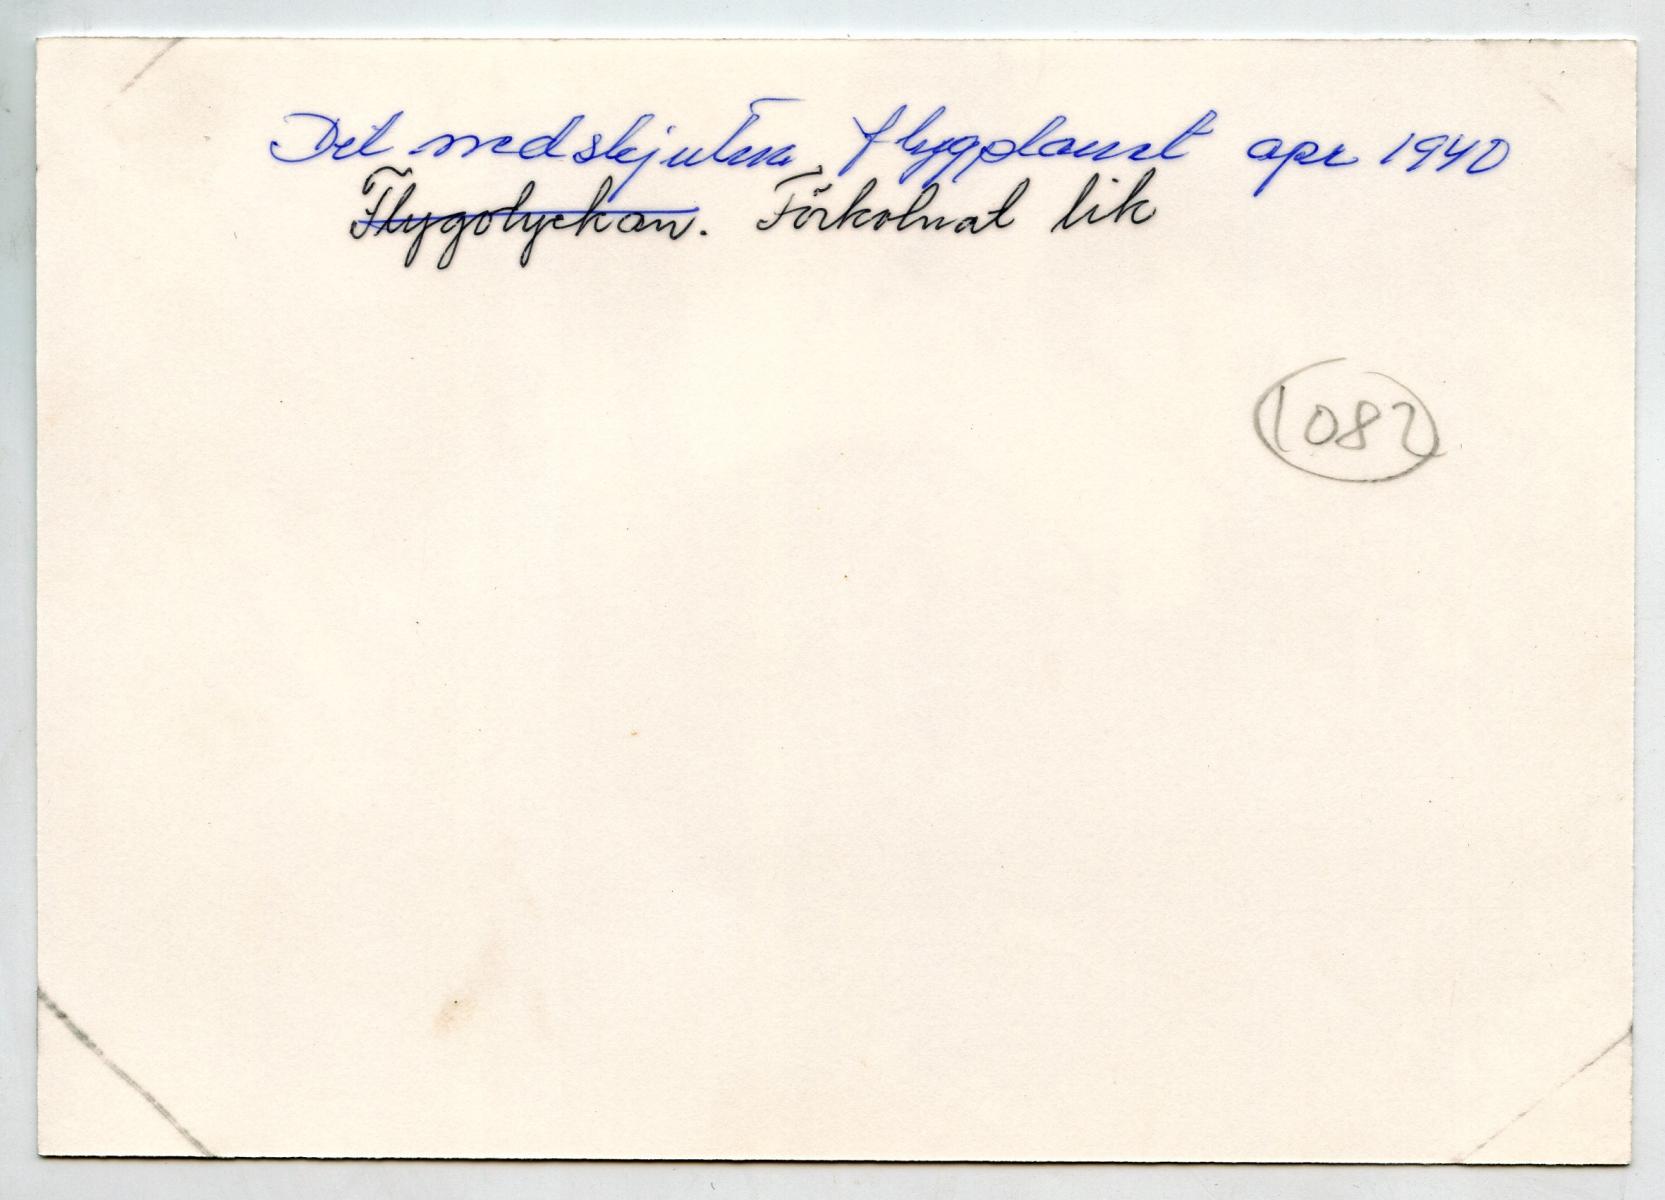 Det nedskjutna flygplanet apr 1940
Flygolyckan. Förkolnat lik
1082